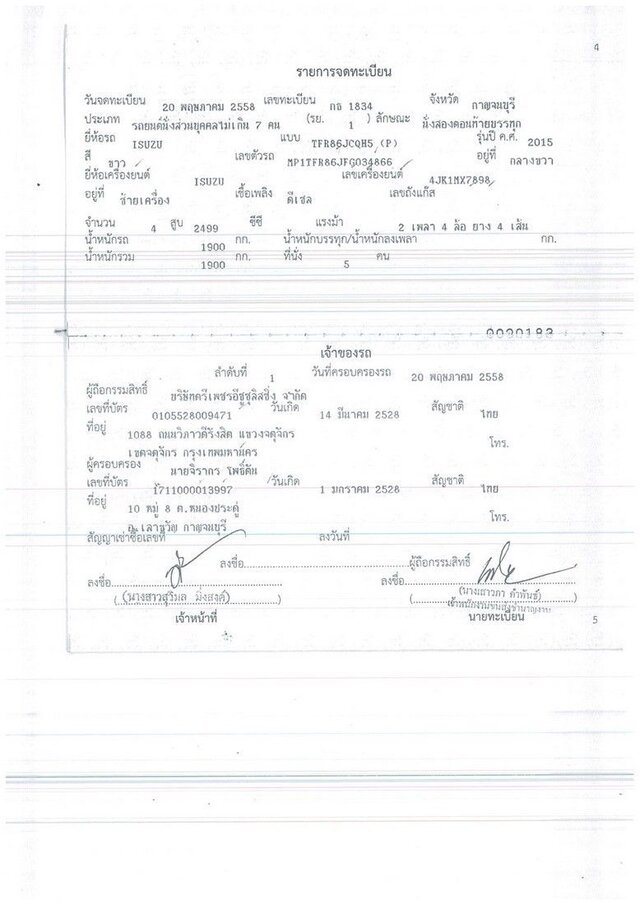 4
รายการจดทะเบียน
วันจดทะเบียน 20 พฤษภาคม 2558 เลขทะเบียน กธ 1834 จังหวัด กาญจนบุรี
ประเภท รถยนต์นั่งส่วนบุคคลไม่เกิน 7 คน (รย. 1 ) ลักษณะ นั่งสองตอนท้ายบรรทุก
ยี่ห้อรถ ISUZU แบบ TFR86JCQH5 (P) รุ่นปี ค.ศ. 2015
สี ขาว เลขตัวรถ MP1TFR86JFG034866 อยู่ที่ กลางขวา
ยี่ห้อเครื่องยนต์ ISUZU เลขเครื่องยนต์ 4JK1MX7898
อยู่ที่ ซ้ายเครื่อง เชื้อเพลิง ดีเซล เลขถังแก๊ส
จำนวน 4 สูบ 2499 ซีซี แรงม้า 2 เพลา 4 ล้อ ยาง 4 เส้น
น้ำหนักรถ 1900 กก. น้ำหนักบรรทุก/น้ำหนักลงเพลา กก.
น้ำหนักรวม 1900 กก. ที่นั่ง 5 คน
เจ้าของรถ
ลำดับที่ 1 วันที่ครอบครองรถ 20 พฤษภาคม 2558
ผู้ถือกรรมสิทธิ์ บริษัทตรีเพชรอีซูซุลิสซิ่ง จำกัด
เลขที่บัตร 0105528009471 วันเกิด 14 มีนาคม 2528 สัญชาติ ไทย
ที่อยู่ 1088 ถนนวิภาวดีรังสิต แขวงจตุจักร
เขตจตุจักร กรุงเทพมหานคร โทร.
ผู้ครอบครอง นายจิรากร โพธิ์ตัน
เลขที่บัตร 1711000013997 วันเกิด 1 มกราคม 2528 สัญชาติ ไทย
ที่อยู่ 10 หมู่ 8 ต.หนองประดู่
อ.เลาขวัญ กาญจนบุรี โทร.
สัญญาเช่าซื้อเลขที่ ลงวันที่
ลงชื่อ ผู้ถือกรรมสิทธิ์
ลงชื่อ ลงชื่อ
(นางสาวสุวิมล มิ่งสงค์) (นางเสาวภา คำพันธ์)
เจ้าหน้าที่ นายทะเบียน
5